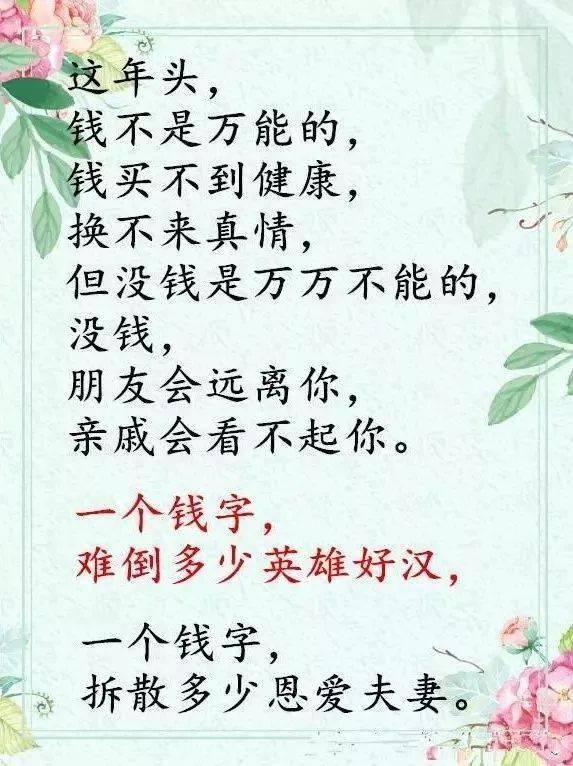 这年头，
钱不是万能的，
钱买不到健康，
换不来真情，
但没钱是万万不能的，
没钱，
朋友会远离你，
亲戚会看不起你。
一个钱字，
难倒多少英雄好汉，
一个钱字，
拆散多少恩爱夫妻。